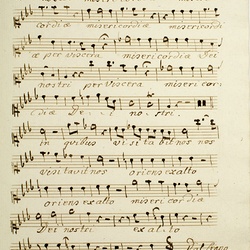 cordiæ misericordiæ misericordi
æ per viscera misericordiæ Dei
nostri per viscera miseri cor:
diæ De i no stri.
in quibus vi si ta bit nos nos
visitavit nos oriens exalto
oriens exalto misericordia
Dei nostri ex al to